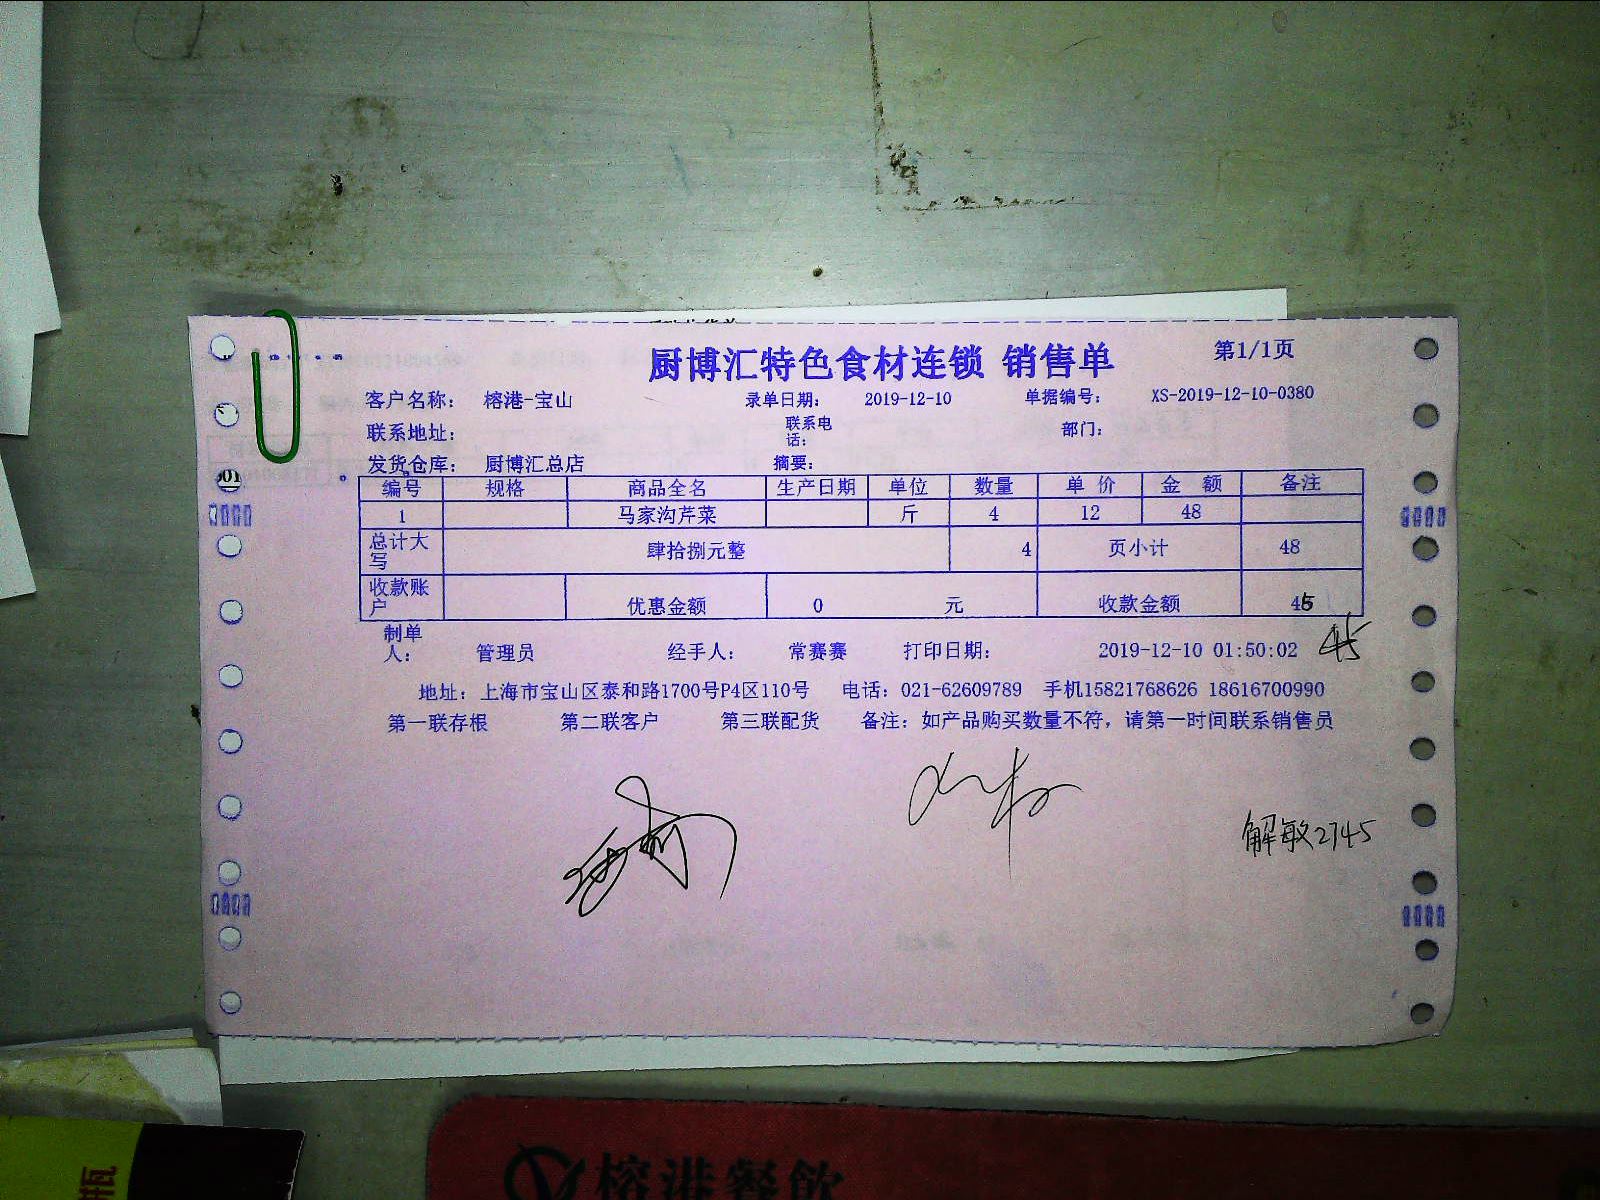 厨博汇特色食材连锁 销售单 第1/1页
客户名称： 榕港-宝山 录单日期： 2019-12-10 单据编号： XS-2019-12-10-0380
联系地址： 联系电话： 部门：
发货仓库： 厨博汇总店 摘要：
编号 规格 商品全名 生产日期 单位 数量 单价 金额 备注
1 马家沟芹菜 斤 4 12 48
总计大写 肆拾捌元整 4 页小计 48
收款账户 优惠金额 0 元 收款金额 45
45
制单人： 管理员 经手人： 常赛赛 打印日期： 2019-12-10 01:50:02
地址：上海市宝山区泰和路1700号P4区110号 电话：021-62609789 手机15821768626 18616700990
第一联存根 第二联客户 第三联配货 备注：如产品购买数量不符，请第一时间联系销售员
解敏2745
榕港餐飲